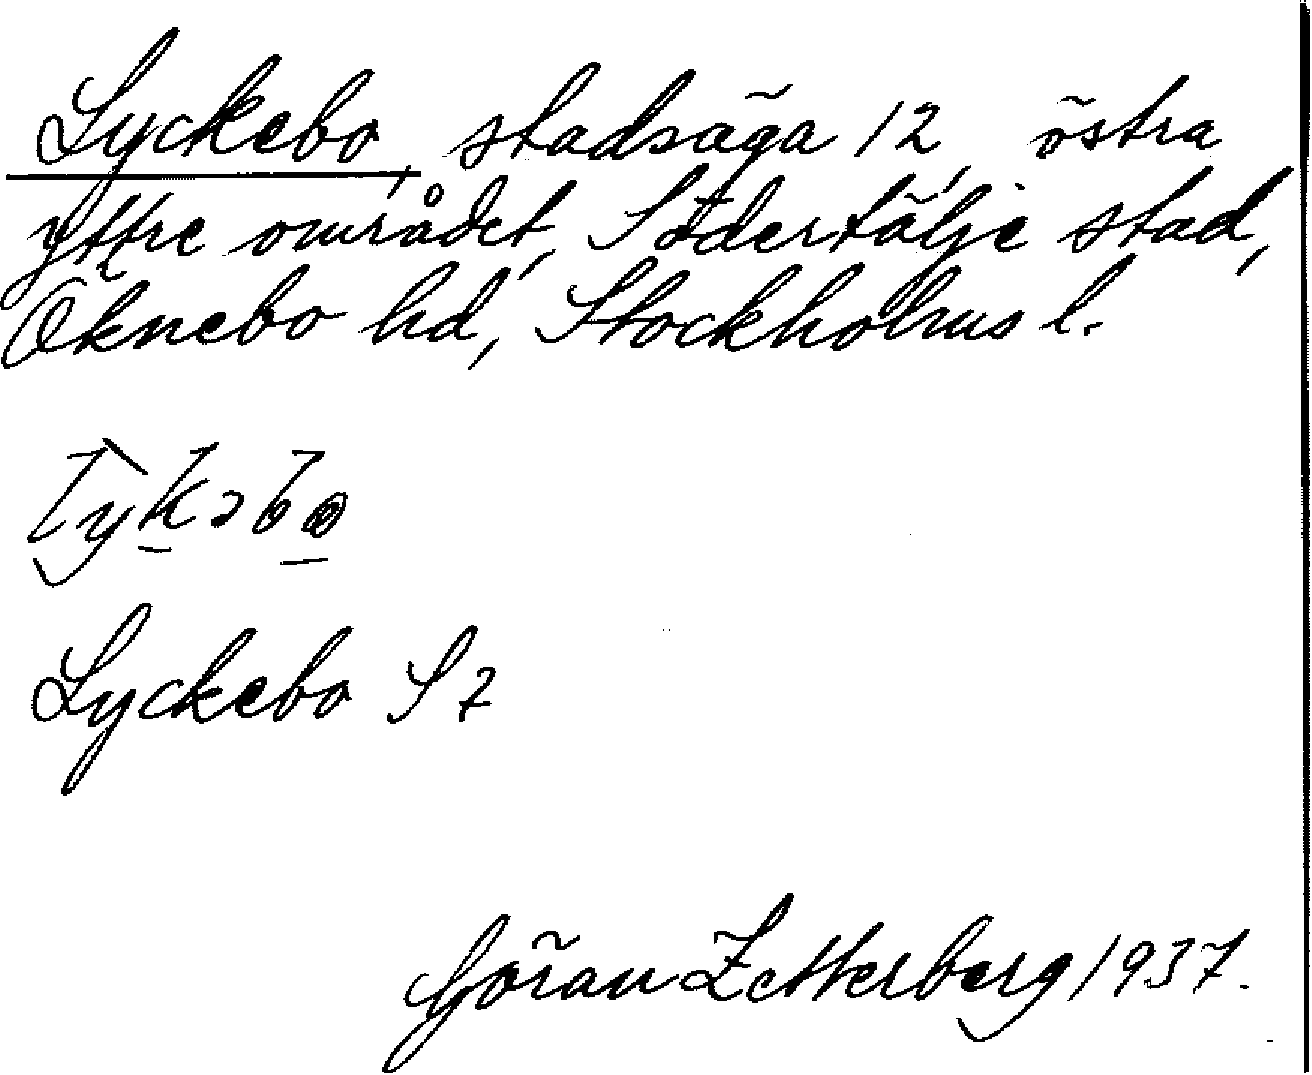 Lyckebo, stadsäga 12, östra
yttre området, Södertälje stad,
Öknebo hd, Stockholms l.
Lyckebo S 7
Göran Zetterberg 1937.